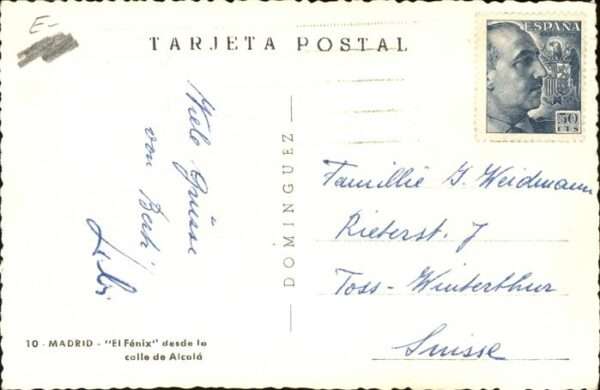 E-
TARJETA POSTAL
ESPAÑA
50
CTS
Viele Grüsse
von
DOMINGUEZ
Familie J. Weidmann
Rieterst. 7
Töss-Winterthur
Suisse
10 - MADRID - "El Fénix" desde la
calle de Alcalá